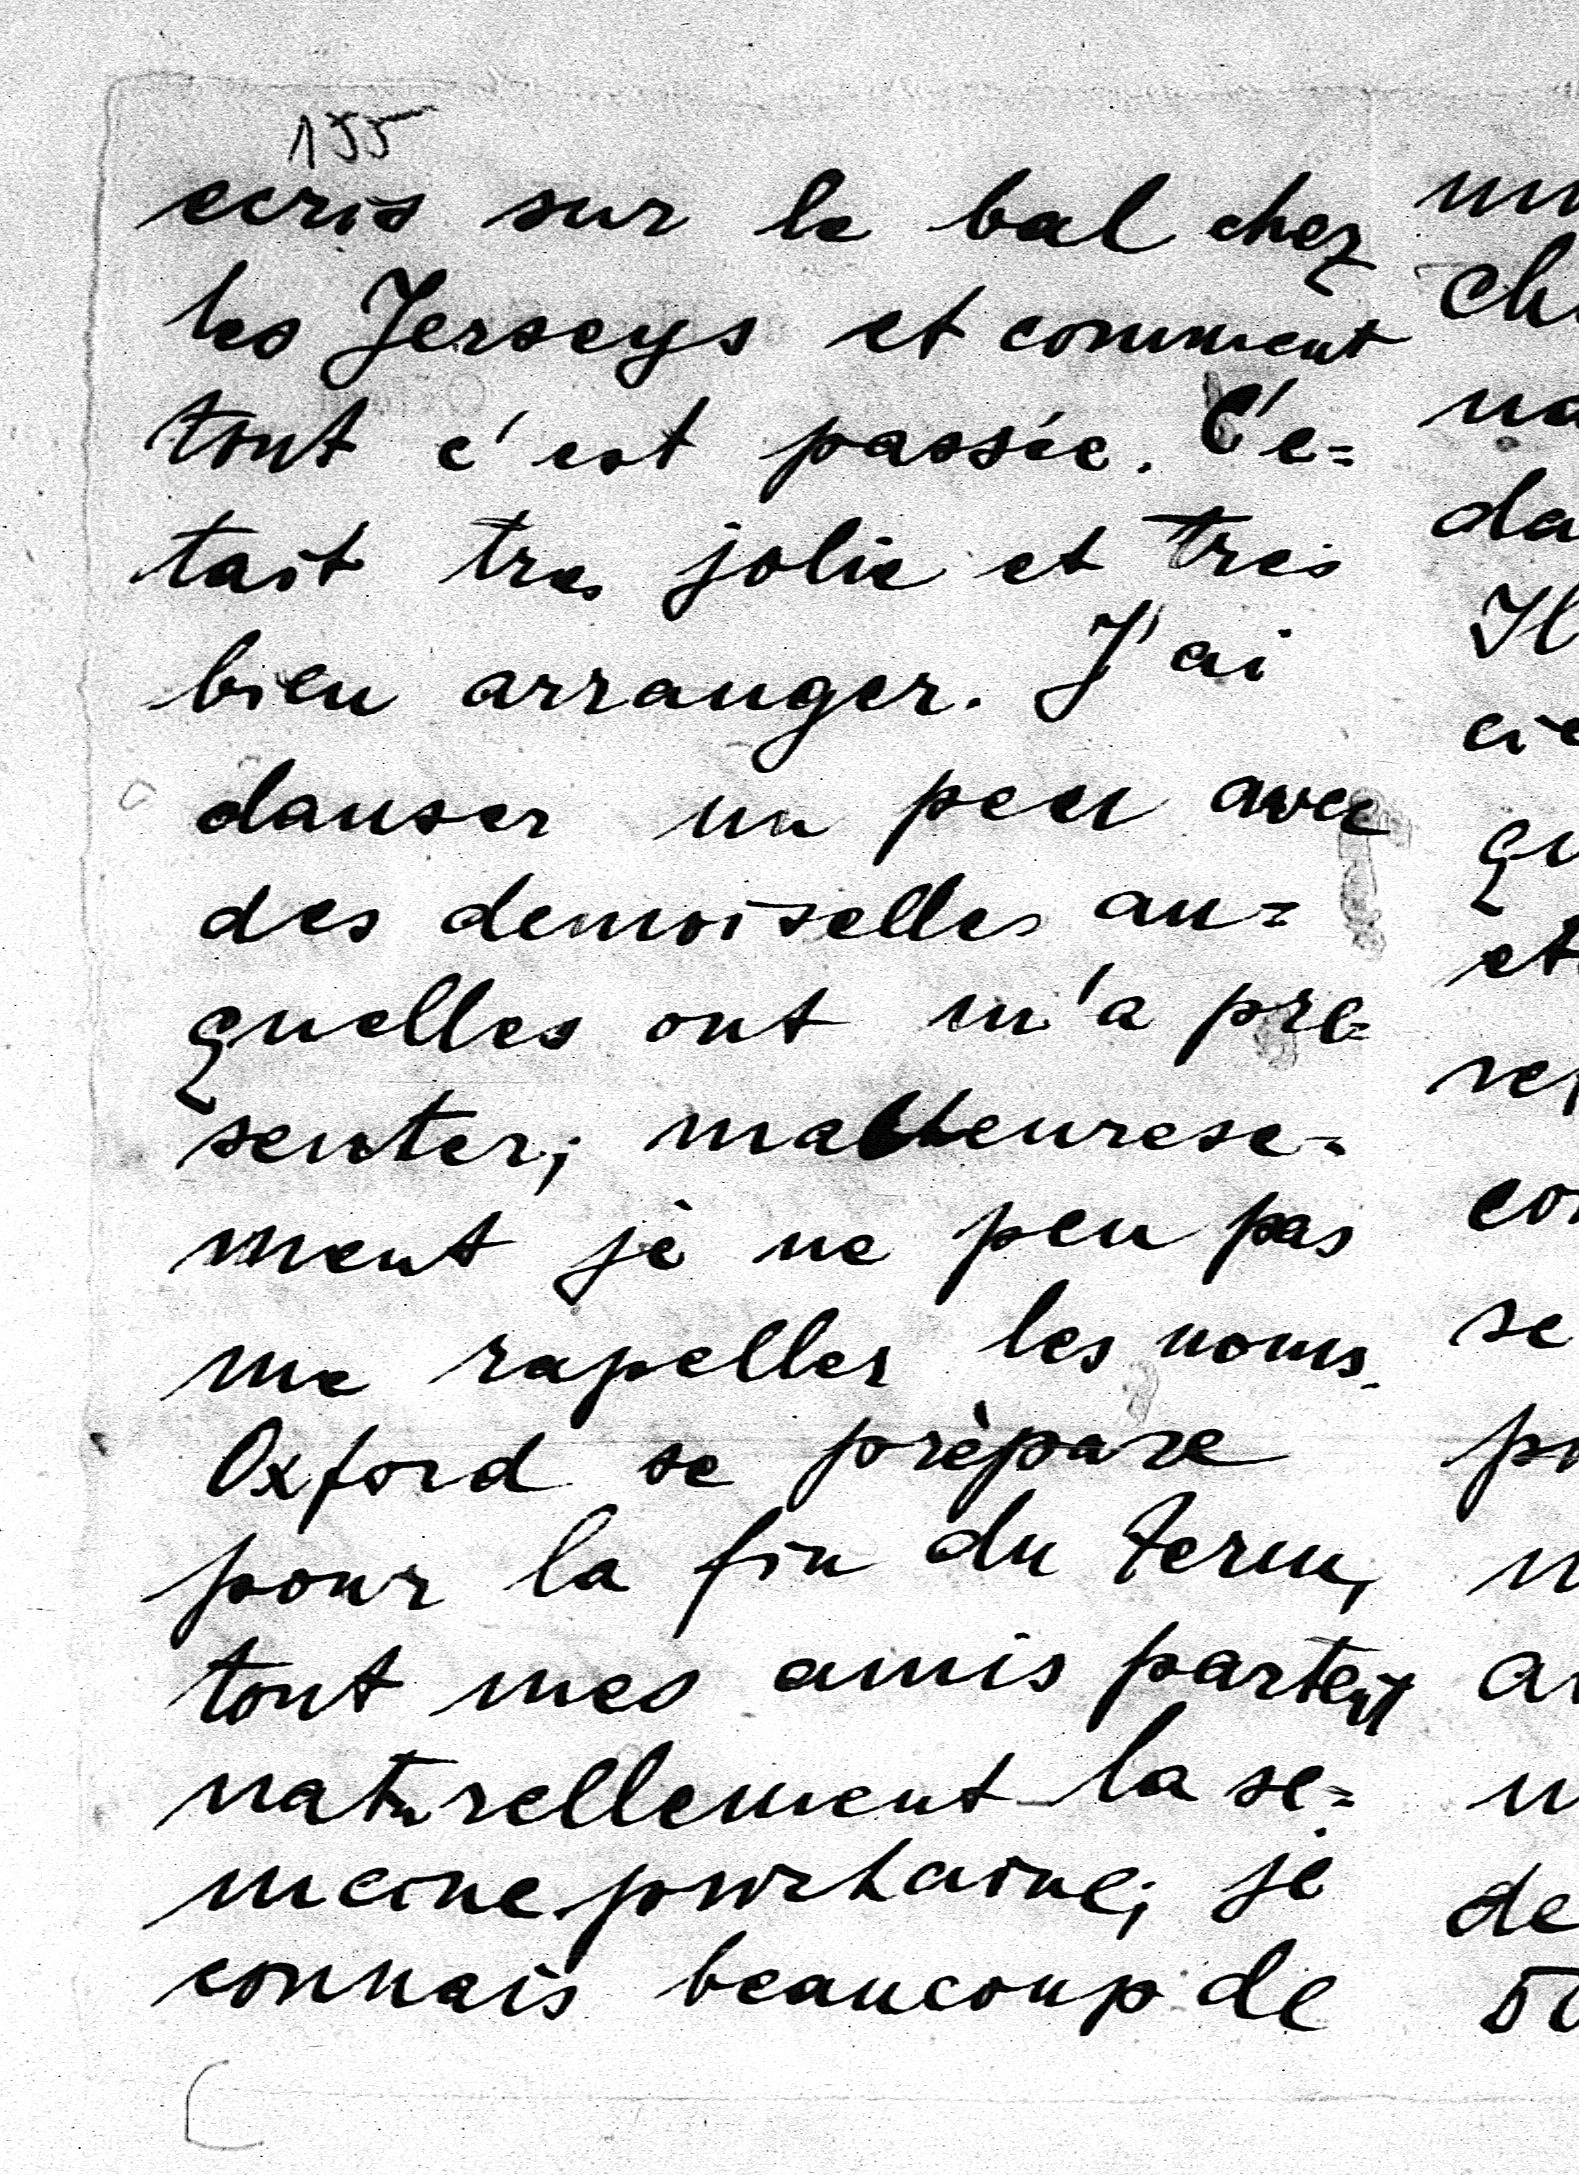 155
ecris sur le bal chez
les Jerseys et comment
tout c'est passée. C'e=
tait tres jolie et tres
bien arranger. J'ai
danser un peu avec
des demoiselles au=
quelles ont m'a pre=
senter; malheurese=
ment je ne peu pas
me rapeller les noms.
Oxford se prèpare
pour la fin du term,
tout mes amis partent
naturellement la se=
meine porchaine; je
connais beaucoup de